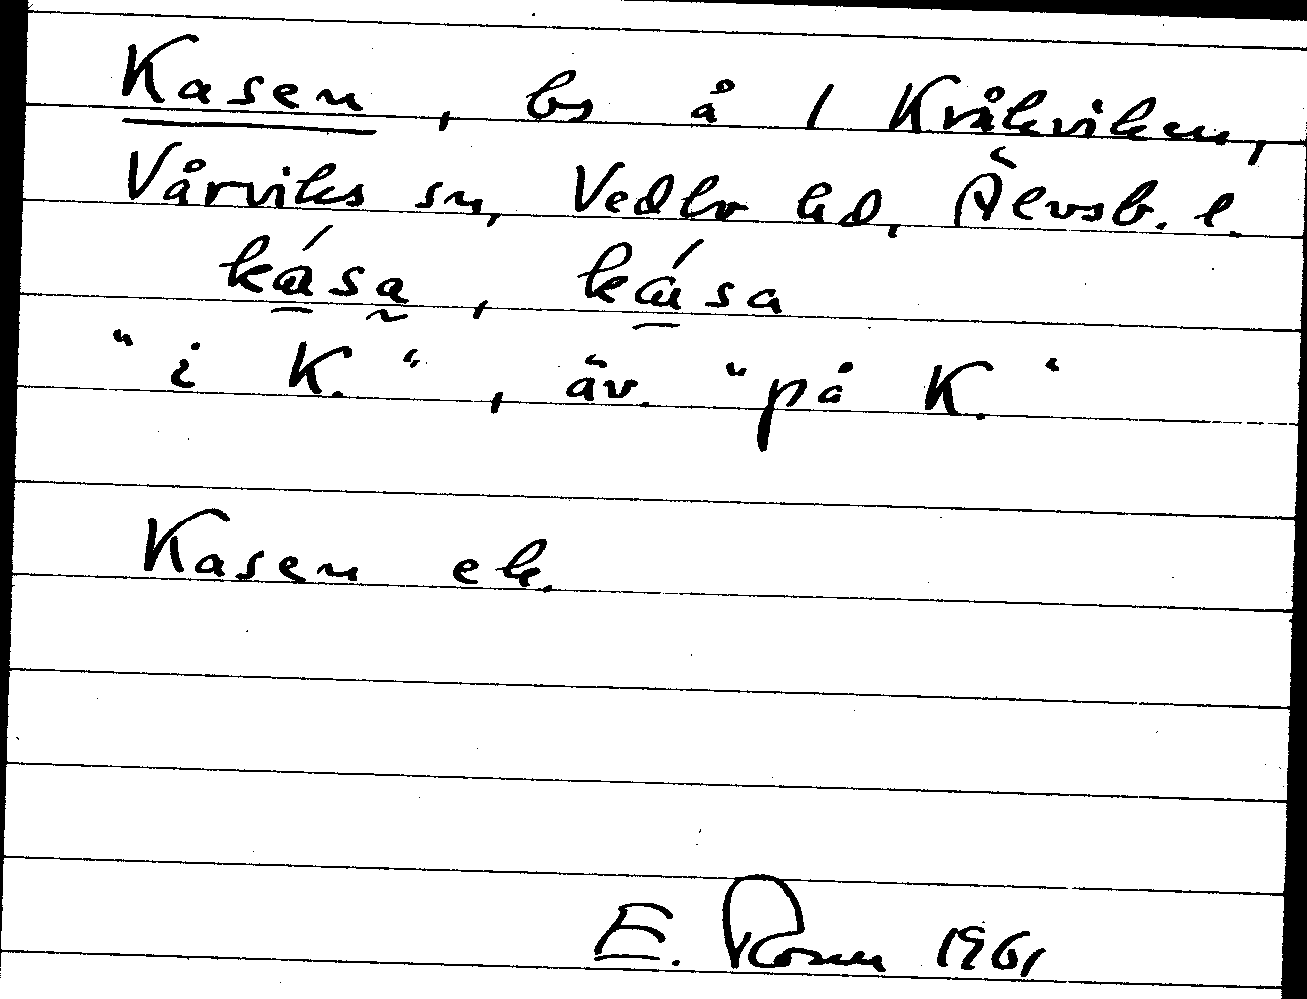 Kasen, bs å 1 Kråkviken,
Vårviks sn, Vedbo hd, Älvsb. l.
kása, kása
"i K.", äv. "på K."
Kasen ek.
E. Rosen 1961